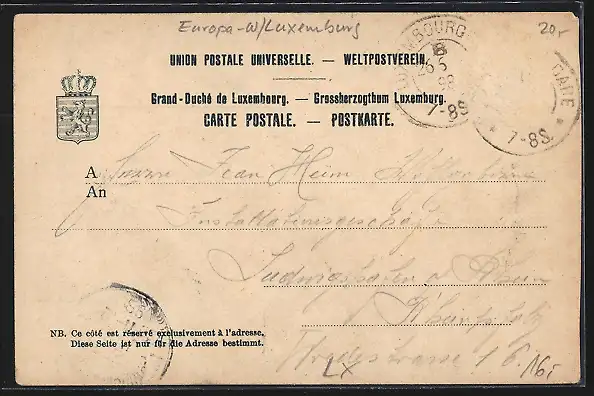 Europa-W/Luxemburg
20,-
UNION POSTALE UNIVERSELLE. — WELTPOSTVEREIN.
Grand-Duché de Luxembourg. — Grossherzogthum Luxemburg.
CARTE POSTALE. — POSTKARTE.
GARE
7-8S
7-8S
A Herrn Jean Heim
An
Installationsgeschäft
Ludwigshafen a Rhein
Rheinpfalz
16.
NB. Ce côté est réservé exclusivement à l'adresse.
Diese Seite ist nur für die Adresse bestimmt.
LX